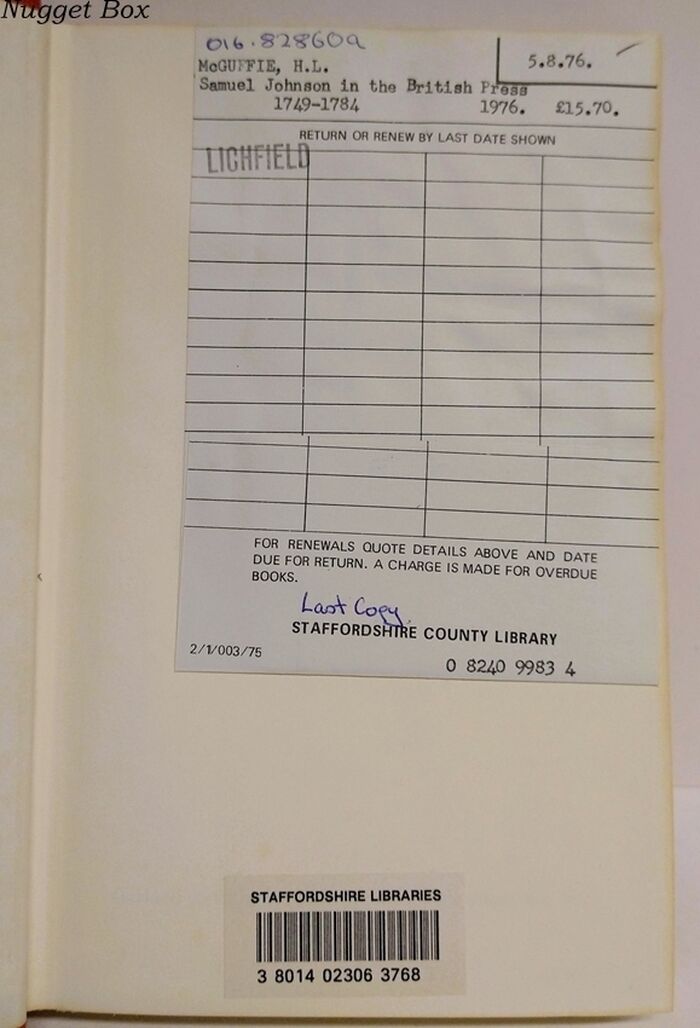 Nugget Box
016.828609
5.8.76.
McGUFFIE, H.L.
Samuel Johnson in the British Press
1749-1784 1976. £15.70.
RETURN OR RENEW BY LAST DATE SHOWN
LICHFIELD
FOR RENEWALS QUOTE DETAILS ABOVE AND DATE
DUE FOR RETURN. A CHARGE IS MADE FOR OVERDUE
BOOKS.
Last Copy
STAFFORDSHIRE COUNTY LIBRARY
2/1/003/75
0 8240 9983 4
STAFFORDSHIRE LIBRARIES
3 8014 02306 3768